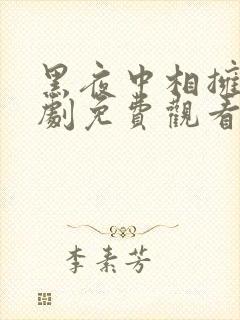 黑夜中相擁
劇免費觀看
李素芳